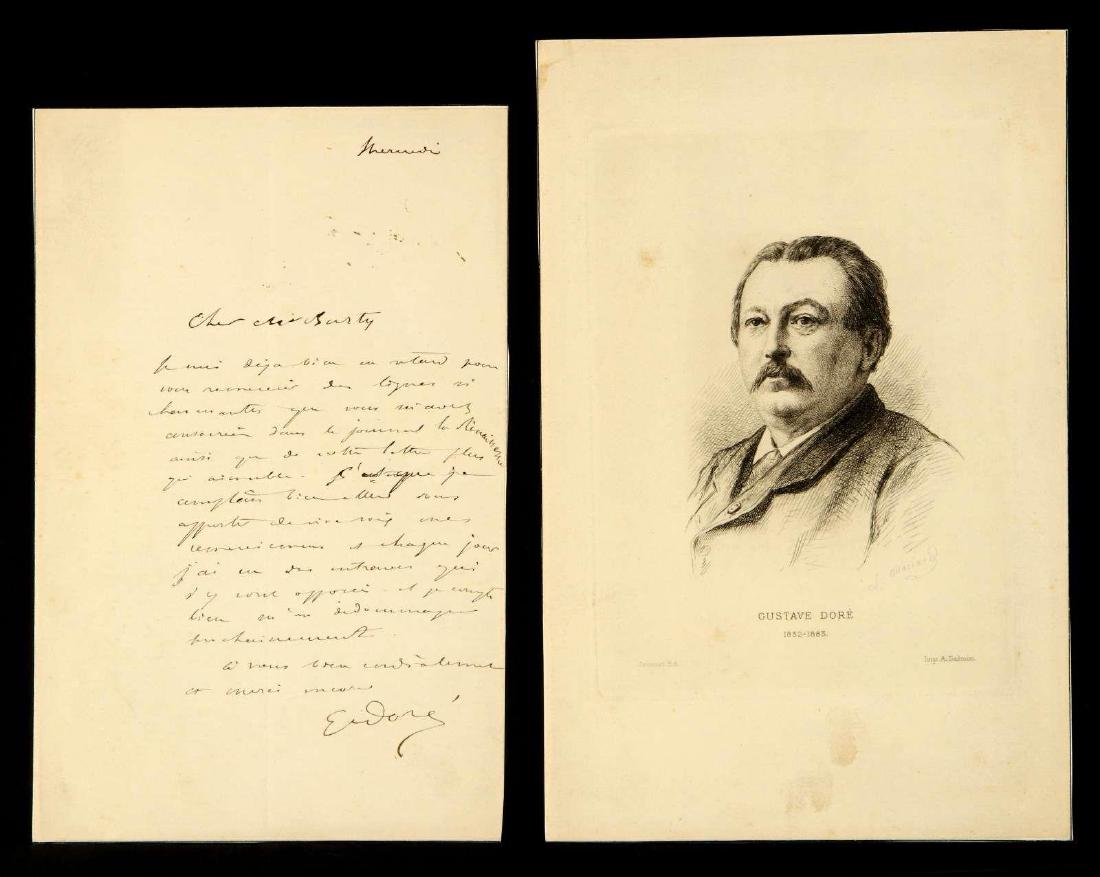 Mercredi
Cher Mr Burty
Je suis déjà bien en retard pour
vous remercier des lignes si
charmantes que vous m'avez
consacrées dans le journal la Renaissance
ainsi que de votre lettre plus
qu'aimable. que je
comptais bien aller vous
apporter de vive voix mes
remerciemens et chaque jour
j'ai eu des entraves qui
s'y sont opposées - et je compte
bien m'en dédommager
prochainement.
à vous bien cordialement
et merci encore
G. Doré
GUSTAVE DORÉ
1832-1883.
Imp. A. Salmon.